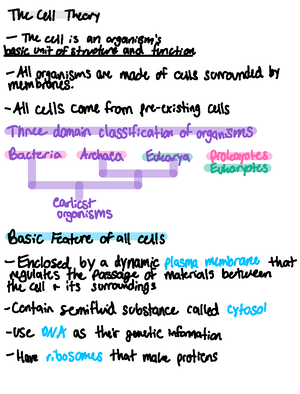 The Cell Theory
- The cell is an organism's
basic unit of structure and function
- All organisms are made of cells surrounded by
membranes.
- All cells come from pre-existing cells
Three domain classification of organisms
Bacteria Archaea Eukarya Prokaryotes
Eukaryotes
earliest
organisms
Basic Feature of all cells
- Enclosed by a dynamic plasma membrane that
regulates the passage of materials between
the cell + its surroundings
- Contain semifluid substance called cytosol
- Use DNA as their genetic information
- Have ribosomes that make proteins